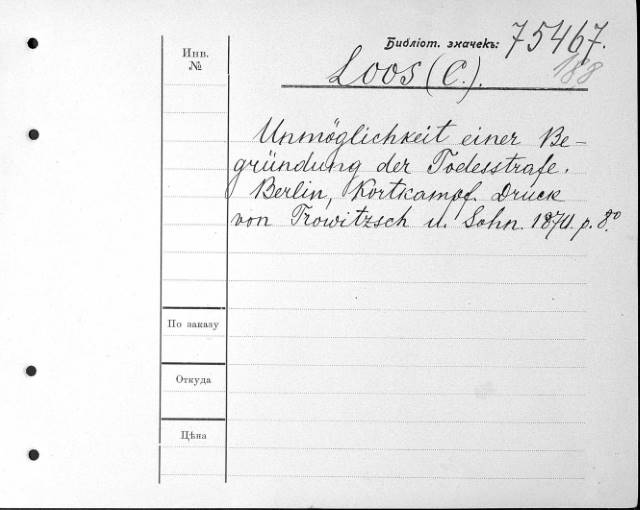 Библіот. значекъ: 75467.
188
Инв.
№
Loos (C.).
Unmöglichkeit einer Be-
gründung der Todesstrafe.
Berlin, Kortkampf. Druck
von Trowitzsch u. Sohn. 1870. p. 8.º
По заказу
Откуда
Цѣна